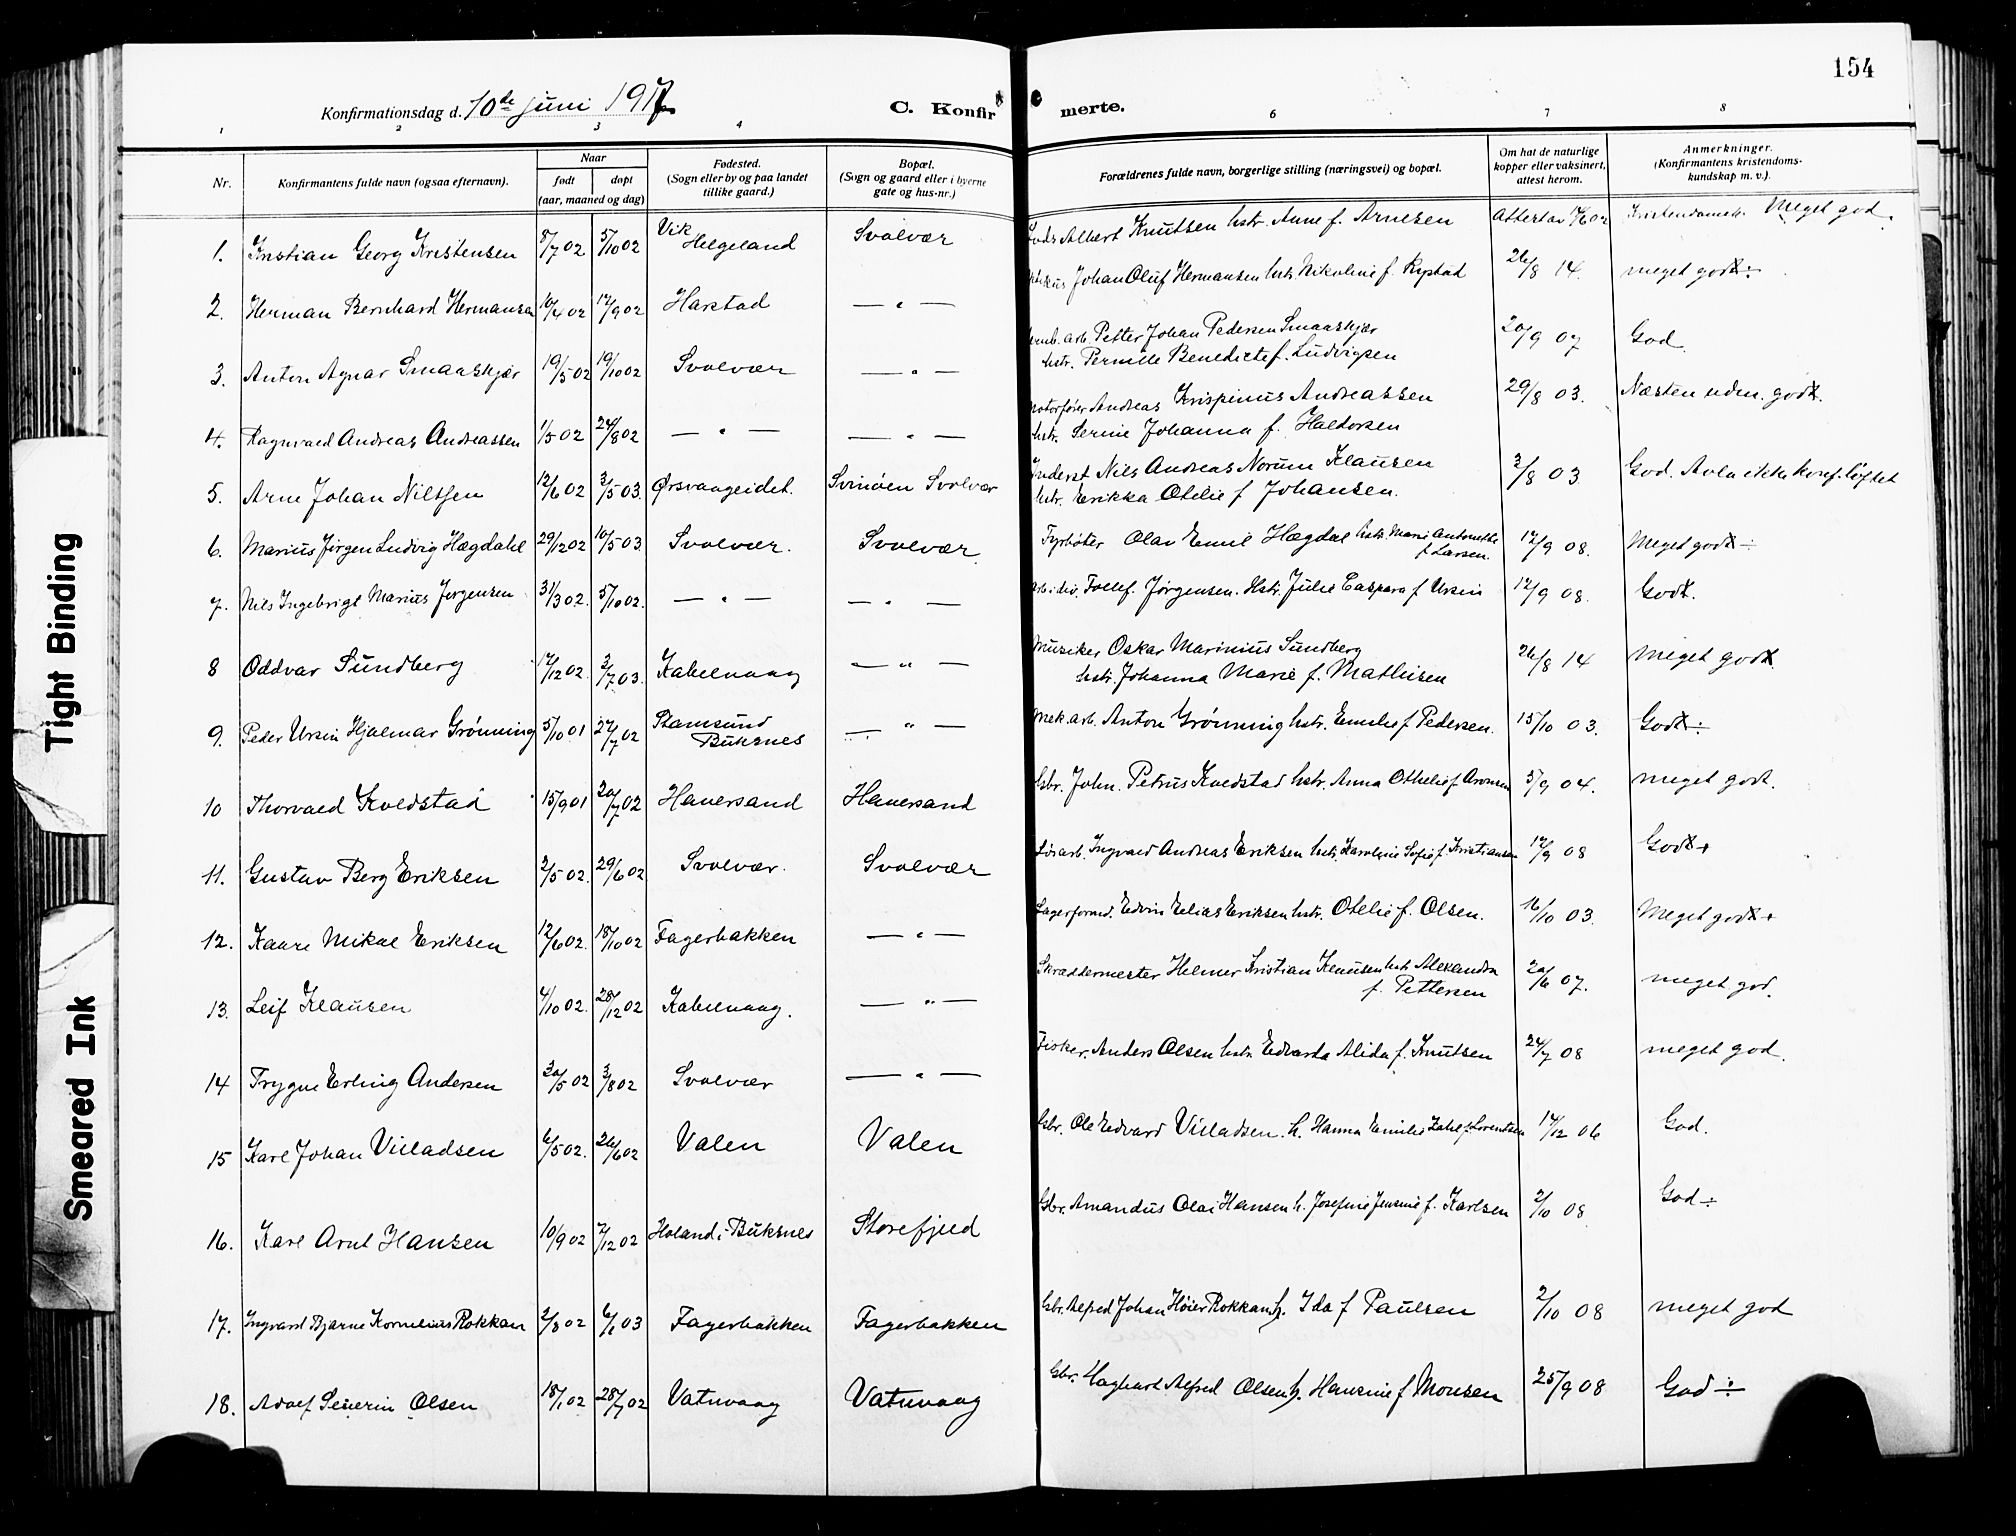 154
Konfirmationsdag d. 10de juni 1917.
C. Konfirmerte.
1 2 3 4 5 6 7 8
Nr.
Konfirmantens fulde navn (ogsaa efternavn).
Naar
født døpt
(aar, maaned og dag)
Fødested.
(Sogn eller by og paa landet
tillike gaard.)
Bopæl.
(Sogn og gaard eller i byerne
gate og hus-nr.)
Forældrenes fulde navn, borgerlige stilling (næringsvei) og bopæl.
Om hat de naturlige
kopper eller vaksinert,
attest herom.
Anmerkninger.
(Konfirmantens kristendoms-
kundskap m. v.).
1. Kristian Georg Kristensen 8/7 02 5/10 02 Vik Helgeland Svolvær Albert Knutsen hstr. Anne f. Arnesen Kristendomsk. Meget god.
2. Herman Bernhard Hermansen 10/4 02 17/9 02 Harstad — " — Johan Oluf Hermansen hstr. Nikoline f. Rystad 26/8 14. meget godt ÷
3. Anton Agnar Smaaskjær 19/5 02 19/10 02 Svolvær — " — arb. Petter Johan Pedersen Smaaskjær
hstr. Pernille Benedicte f. Ludvigsen 20/9 07 God.
4. Ragnvald Andreas Andreassen 1/5 02 24/8 02 — " — — " — Motorfører Andreas Krispinus Andreassen
hstr. Serine Johanna f. Haldorsen 29/8 03. Næsten uden. godt.
5. Arne Johan Nilssen 12/6 02 3/5 03. Ørsvaageidet. Svinøen Svolvær Inderst Nils Andreas Norum Klausen
hstr. Erikka Otelie f Johansen. 3/8 03 God. Avla ikke konf. løftet
6. Marius Jørgen Ludvig Hægdahl 29/12 02 10/5 03. Svolvær. Svolvær. Fyrbøter Olav Emil Hægdal hstr. Marie Antonette
f Larsen. 17/9 08. Meget godt ÷
7. Nils Ingebrigt Marius Jørgensen 31/3 02. 5/10 02. — " — — " — Tollef. Jørgensen. Hstr. Julie Caspara f Ursin 12/9 08. Godt.
8 Oddvar Sundberg 17/12 02. 3/7 03. Kabelvaag — " — Musiker Oskar Marinius Sundberg
hstr. Johanna Marie f. Mathisen 26/8 14 Meget godt
9. Peder Ursin Hjalmar Grønning 5/10 01 27/7 02 Stamsund
Buksnes — " — Mek. arb. Anton Grønning hstr. Emilie f Pedersen. 15/10 03. Godt ÷
10 Thorvald Kvedstad 15/9 01 20/7 02 Hanersand Hanersand Gbr. John. Petrus Kvedstad hstr. Anna Othelie f Aronsen 5/9 04. meget godt.
11. Gustav Berg Eriksen 2/5 02. 29/6 02 Svolvær. Svolvær Løsarb. Ingvald Andreas Eriksen hstr. Karoline Sofie f. Kristiansen 17/9 08 Godt +
12. Kaare Mikal Eriksen 12/6 02. 18/10 02 Fagerbakken — " — Lagerformd. Edvin Elias Eriksen hstr. Otelie f. Olsen. 16/10 03. Meget godt +
13. Leif Klausen 4/10 02. 28/12 02 Kabelvaag. — " — Skræddermester Helmer Kristian Klausen hstr Alexandra
f. Pettersen 20/6 07. meget god.
14 Trygve Erling Andersen 30/5 02 3/8 02 Svolvær — " — Fisker. Anders Olsen hstr Edvarda Alida f. Knutsen 24/7 08 meget god.
15 Karl Johan Villadsen 6/5 02. 26/6 02 Valen Valen Gbr. Ole Edvard Villadsen. h. Hanna Emilie f Lorentsen 17/12 06 God.
16. Karl Arnt Hansen 10/9 02 7/12 02 Holand i Buksnes Storefjeld Gbr. Amandus Olai Hansen h. Josefine Jensine f. Karlsen 2/10 08. God ÷
17. Ingvard Bjarne Kornelius Rokkan 2/8 02 6/1 03 Fagerbakken Fagerbakken Gbr. Alfred Johan Høier Rokkan h. Ida f Paulsen 2/10 08 meget god
18. Adolf Severin Olsen 18/1 02 28/7 02 Vatnvaag Vatnvaag Gbr. Hagbart Alfred Olsen h. Hansine f Monsen 25/9 08 God ÷
Tight Binding
Smeared Ink